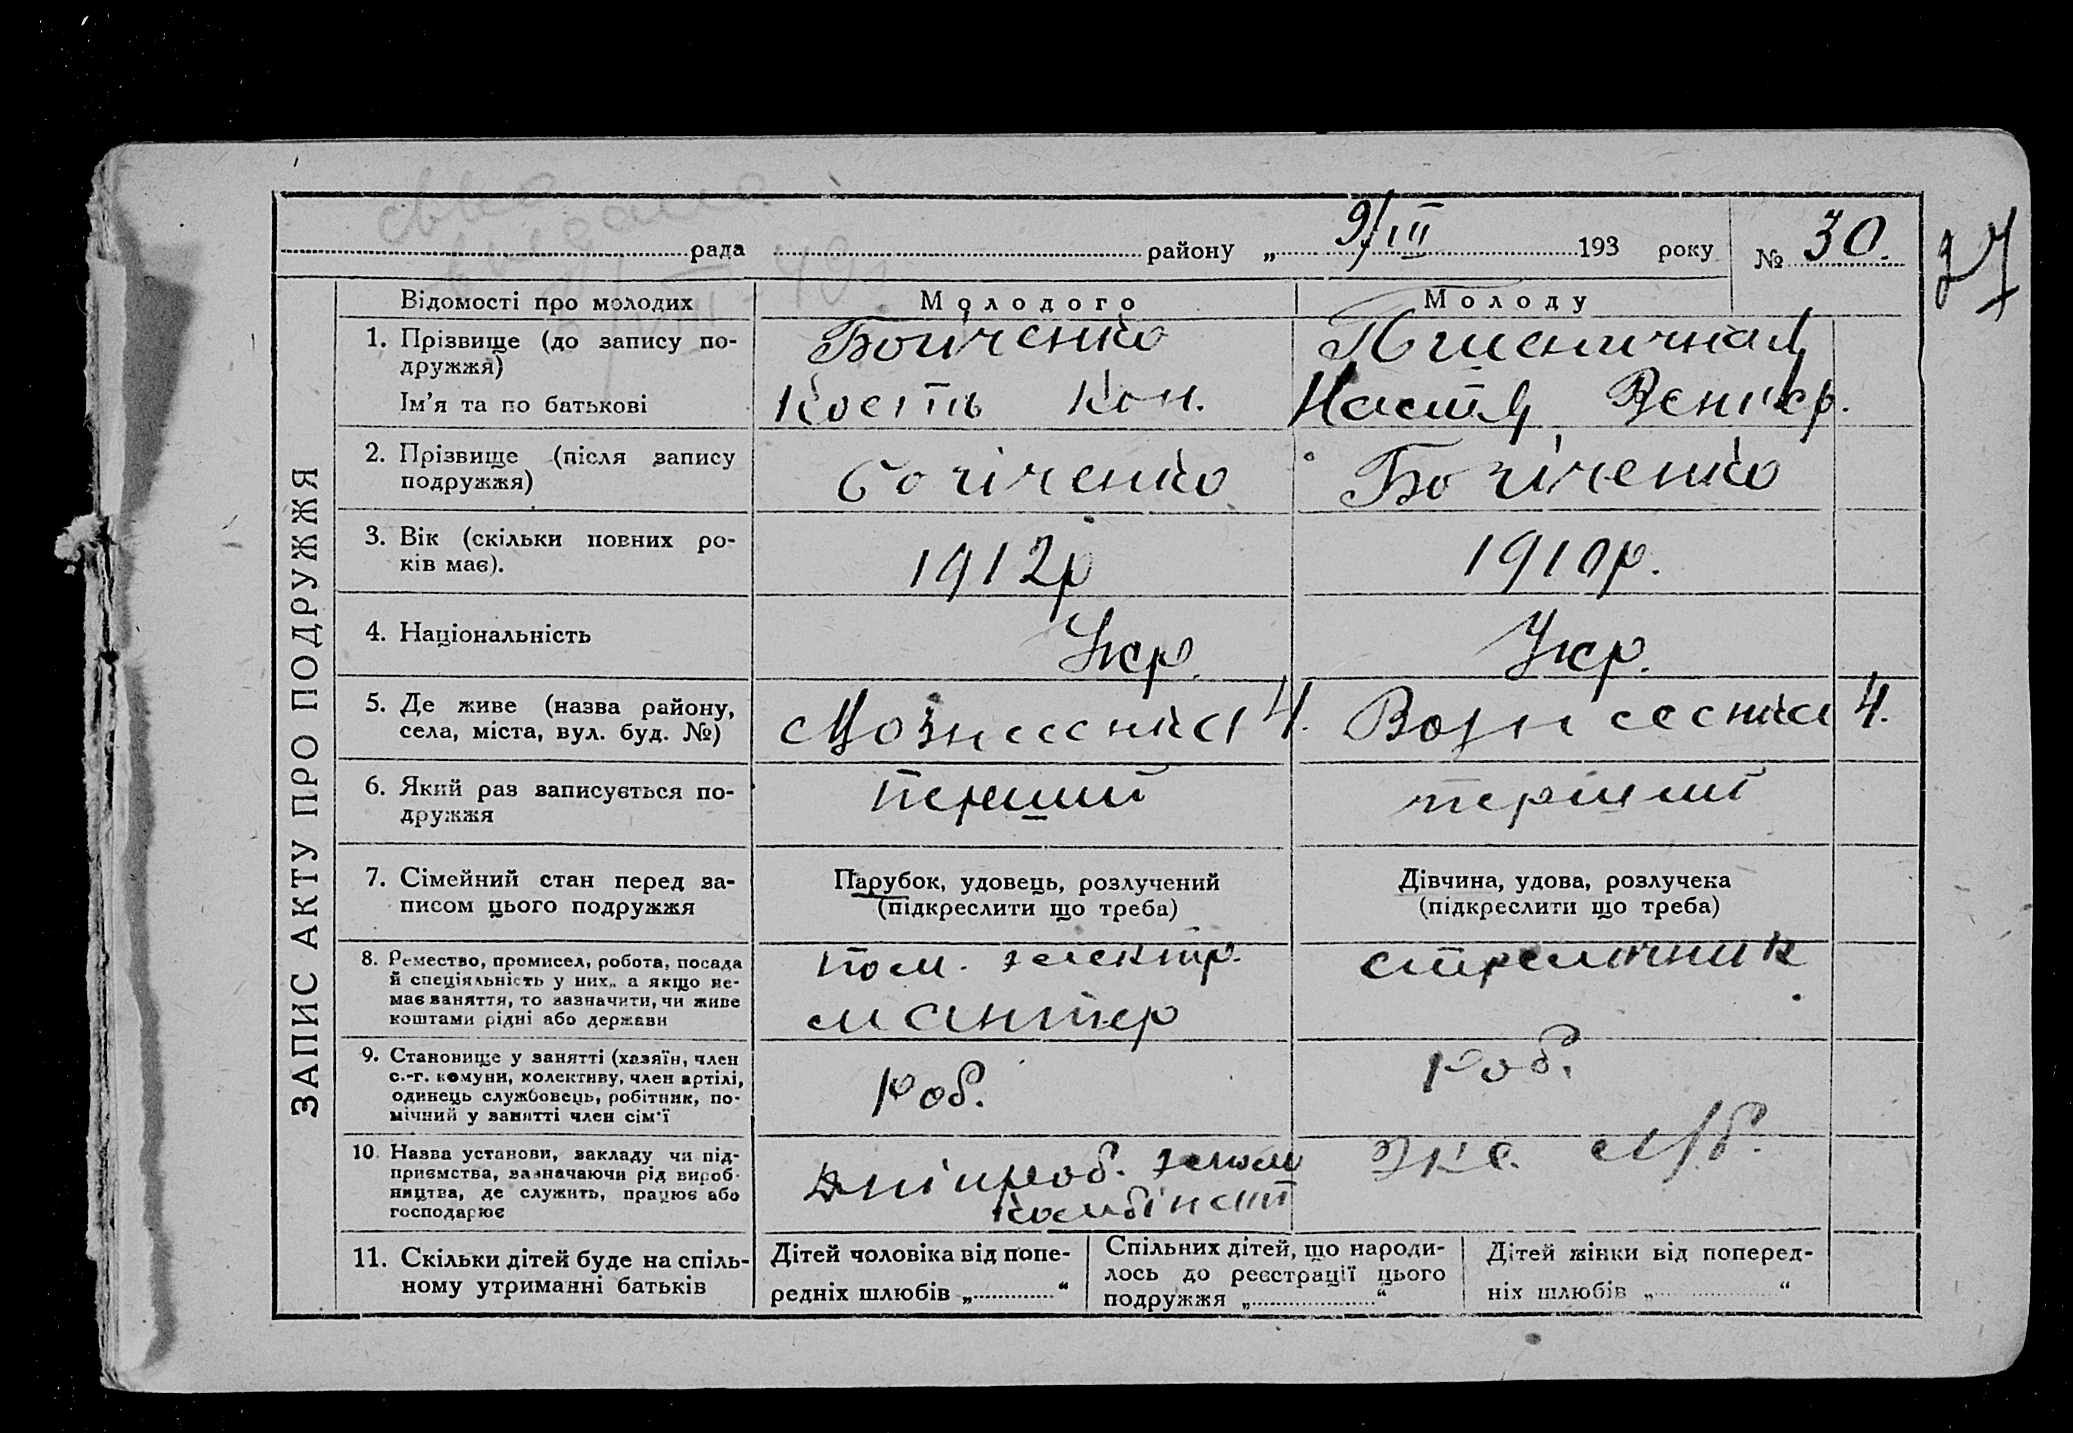 рада району „ 9/III 193 року № 30.
27
ЗАПИС АКТУ ПРО ПОДРУЖЖЯ
Відомості про молодих Молодого Молоду
1. Прізвище (до запису по-
дружжя)
Пшенична
Ім’я та по батькові
Кость Кон. Настя
2. Прізвище (після запису
подружжя)
3. Вік (скільки повних ро-
ків має).
1912р 1910р.
4. Національність
Укр. Укр.
5. Де живе (назва району,
села, міста, вул. буд. №)
Вознесенка 4. Вознесенка 4.
6. Який раз записується по-
дружжя
перший перший
7. Сімейний стан перед за-
писом цього подружжя
Парубок, удовець, розлучений
(підкреслити що треба)
Дівчина, удова, розлучена
(підкреслити що треба)
8. Ремество, промисел, робота, посада
й спеціяльність у них, а якщо не-
має заняття, то зазначити, чи живе
коштами рідні або держави
пом. електр.
мантер
стрелочник
9. Становище у занятті (хазяїн, член
с.-г. комуни, колективу, член артілі,
одинець службовець, робітник, по-
мічний у занятті член сім’ї
роб. роб.
10. Назва установи, закладу чи під-
приємства, зазначаючи рід вироб-
ництва, де служить, працює або
господарює
комбінат
11. Скільки дітей буде на спіль-
ному утриманні батьків
Дітей чоловіка від попе-
редніх шлюбів „ “
Спільних дітей, що народи-
лось до реєстрації цього
подружжя „ “
Дітей жінки від поперед-
ніх шлюбів „ “